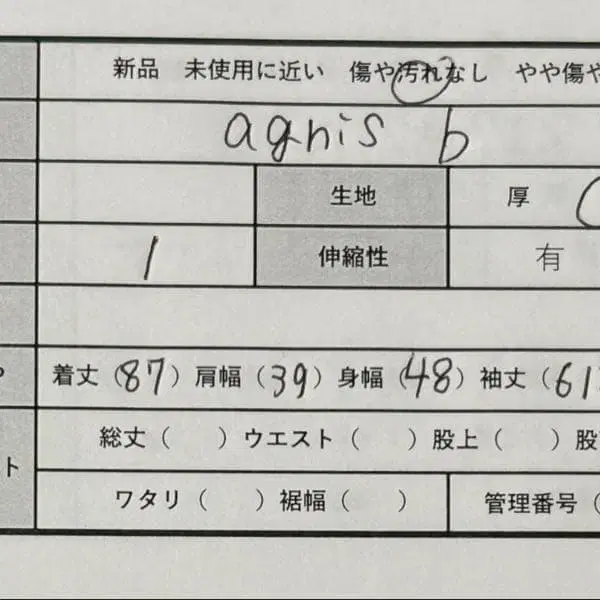 新品 未使用に近い 傷や汚れなし やや傷や
agnis b
生地 厚
1 伸縮性 有
着丈（87）肩幅（39）身幅（48）袖丈（61
総丈（ ）ウエスト（ ）股上（ ）股
ト
ワタリ（ ）裾幅（ ） 管理番号（